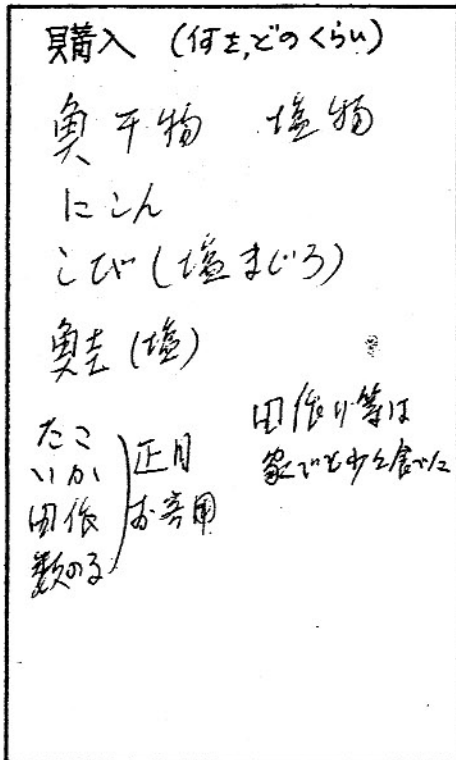 購入 (何を,どのくらい)
魚 干物 塩物
にしん
こび(塩まぐろ)
鮭(塩)
たこ
いか
田作
数の子
正月
お客用
田作り等は
家でも少々食べた